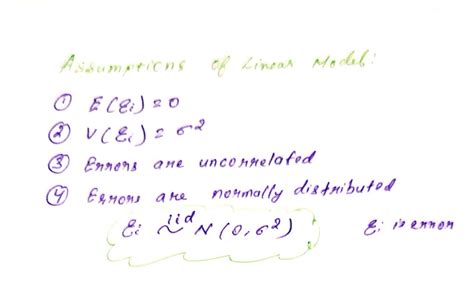 Assumptions of Linear Model:
① E(εi) = 0
② V(εi) = σ²
③ Errors are uncorrelated
④ Errors are normally distributed
εi iid ~ N(0, σ²) εi is error